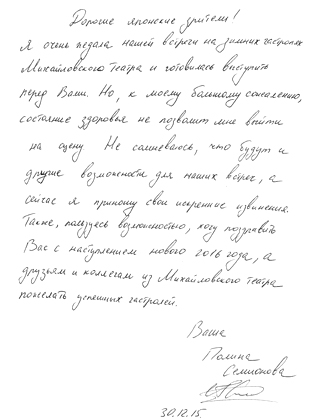 Дорогие японские зрители!
Я очень ждала нашей встречи на зимних гастролях
Михайловского Театра и готовилась выступить
перед Вами. Но, к моему большому сожалению,
состояние здоровья не позволит мне выйти
на сцену Не сомневаюсь, что будут и
другие возможности для наших встреч, а
сейчас я приношу свои искренние извинения.
Также, пользуясь возможностью, хочу поздравить
Вас с наступлением нового 2016 года, а
друзьям и коллегам из Михайловского театра
пожелать успешных гастролей.
Ваша
Полина
Семионова
30.12.15.